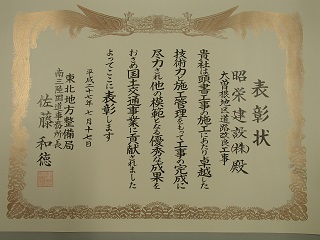 表彰状
昭栄建設(株)殿
大曽根地区道路改良工事
貴社は頭書工事の施工にあたり卓越した
技術力と施工管理をもって工事の完成に
尽力され他の模範となる優秀な成果を
おさめ国土交通事業に貢献されました
よってここに表彰します
平成二十七年七月十七日
東北地方整備局
南三陸国道事務所長
佐藤和徳